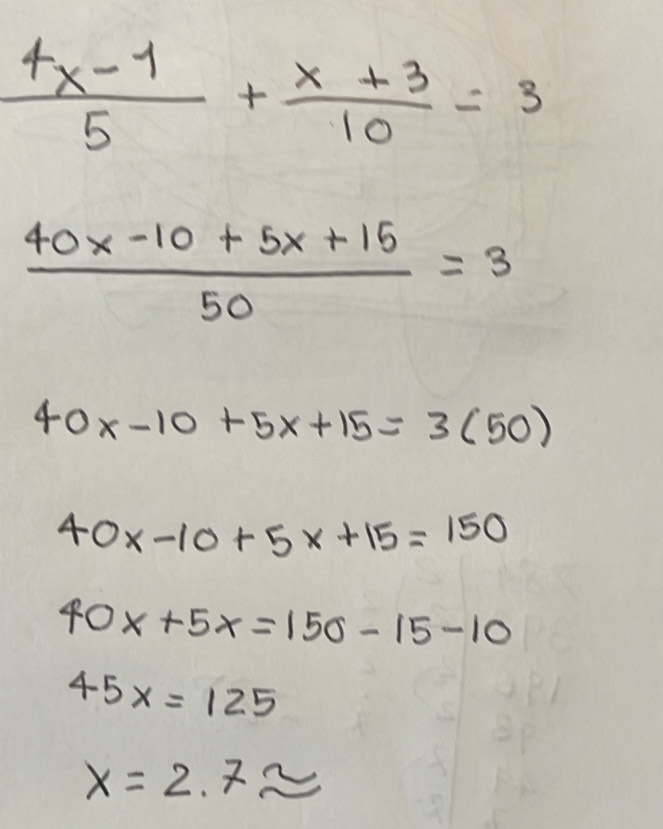 4x-1/5 + x+3/10 = 3
40x-10+5x+15/50 = 3
40x-10+5x+15= 3(50)
40x-10+5x+15=150
40x+5x=150-15-10
45x=125
x=2.7≈